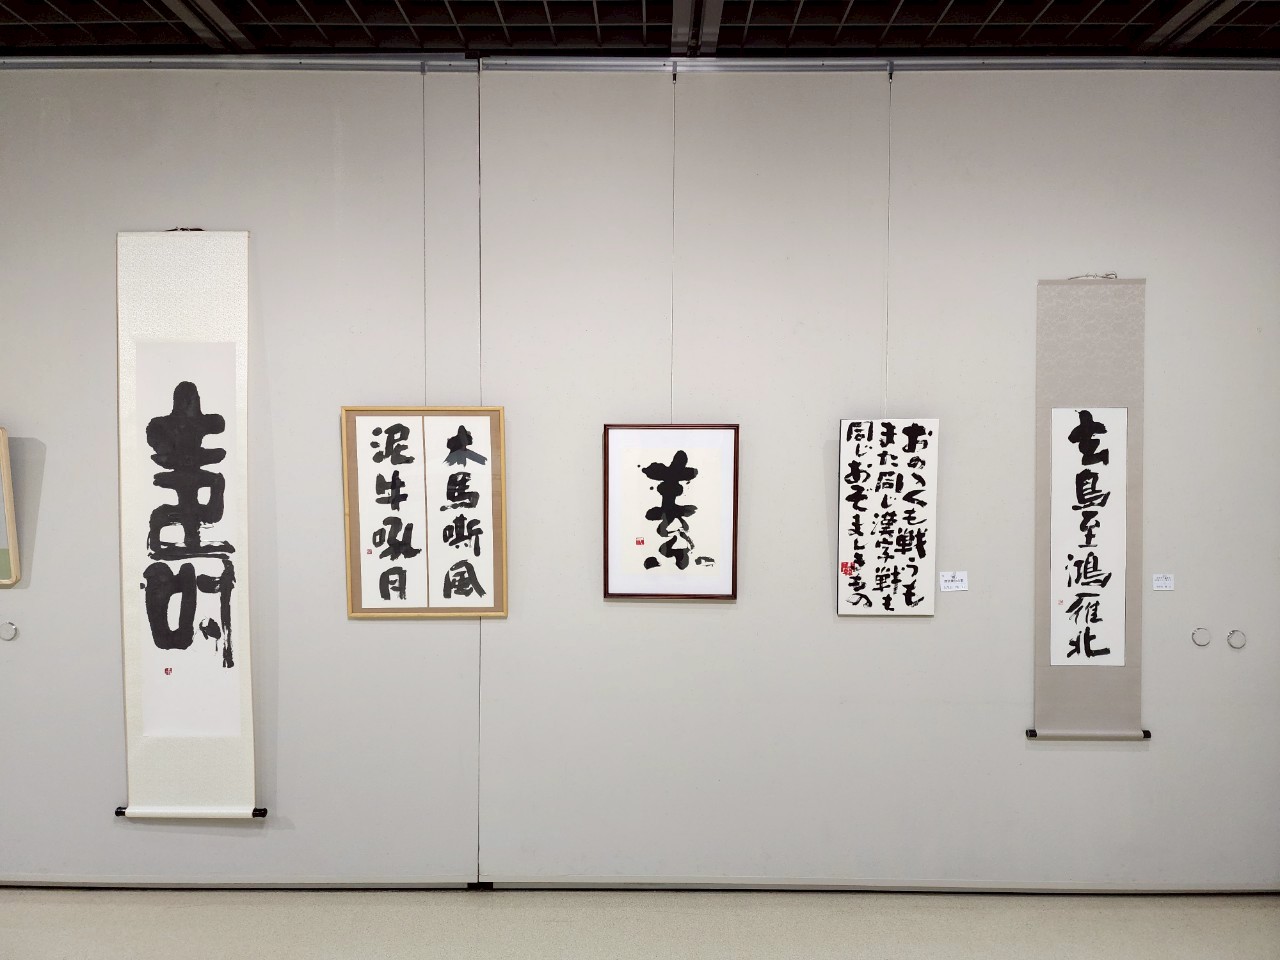 壽
木馬嘶風
泥牛吼月
素
おのいくも戦うも
また同じ漢字戦も
同じおぞましきもの
玄鳥至鴻雁北